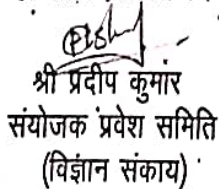 श्री प्रदीप कुमार
संयोजक प्रवेश समिति
(विज्ञान संकाय)